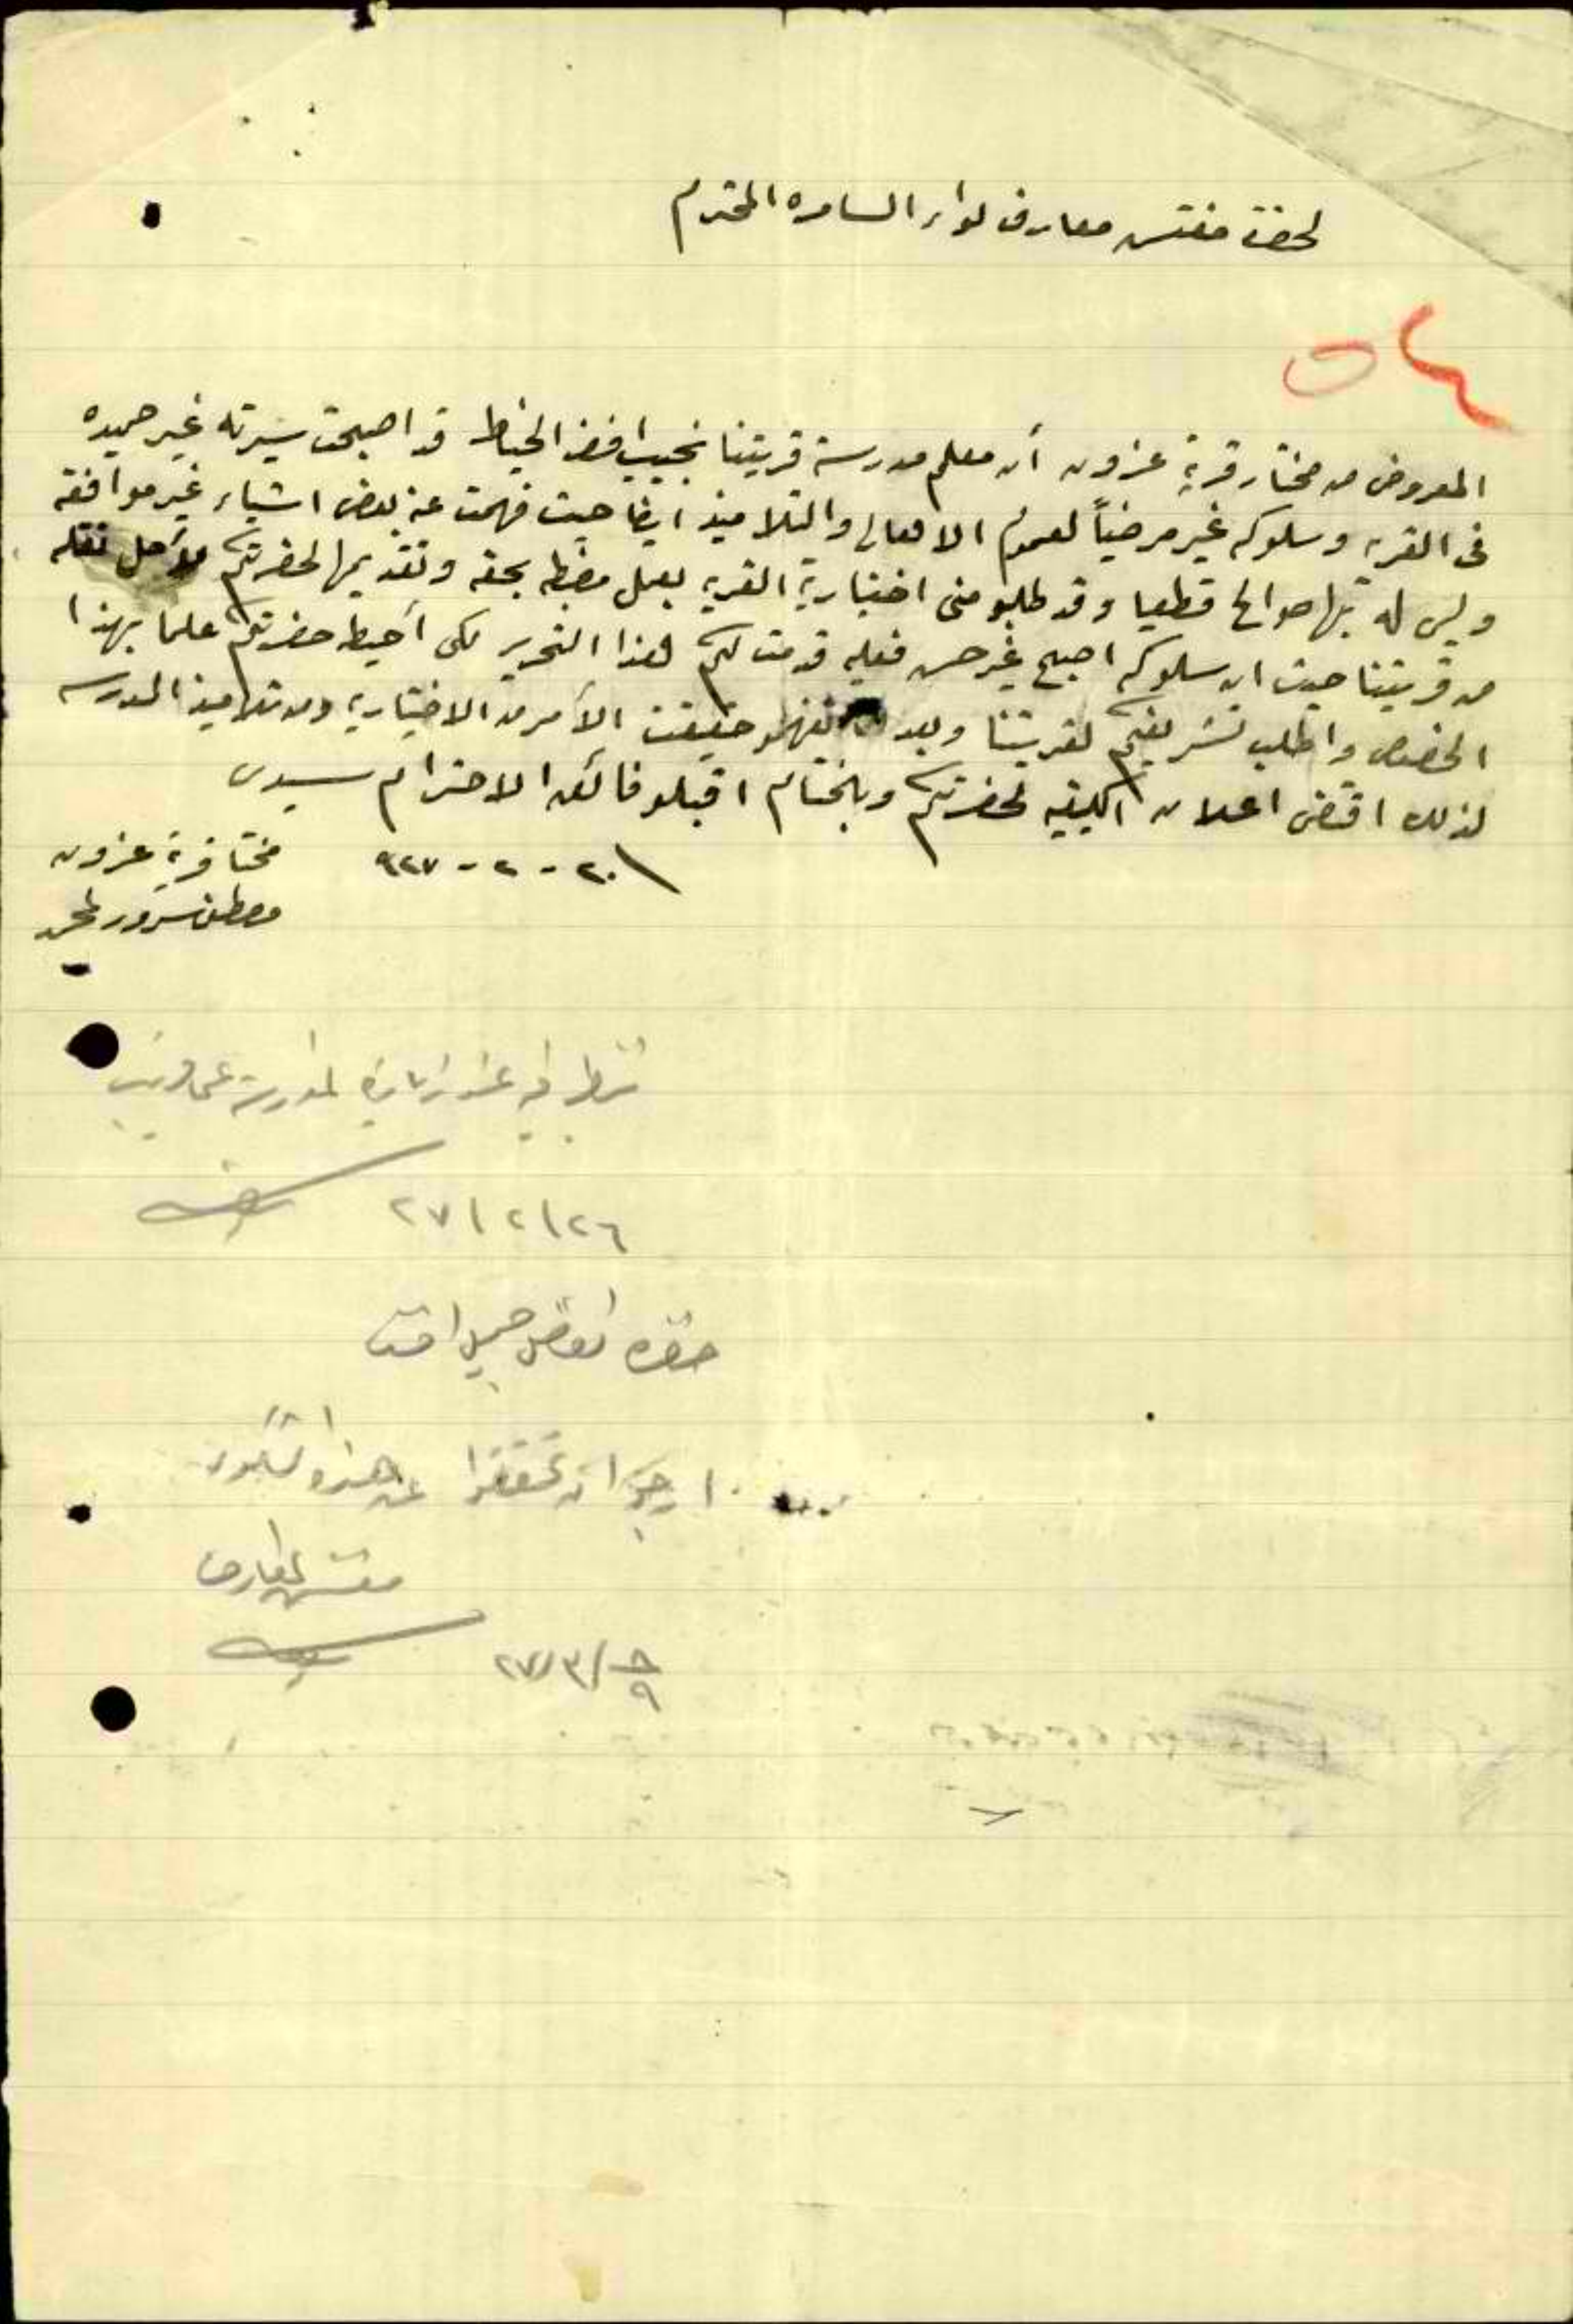 لحضرة مفتش معارف لواء السامره المحترم
٥٤
المعروض من مختار قرية عزون أن معلم مدرسة قريتنا نجيب افندي الخياط قد اصبحت سيرته غير حميده
في القريه وسلوكه غير مرضياً لعموم الاهالي والتلاميذ ايضا حيث فهمت عنه بعض اشياء غير موافقه
وليس له بها صوالح قطعيا وقد طلبو مني اختيارية القريه بعمل مضبطه بحقه وتقديمها لحضرتكم لأجل نقله
من قريتنا حيث ان سلوكه اصبح غير حسن فعليه قدمت لكم هذا التحرير لكي أحيط حضرتكم علما بهذا
الخصوص واطلب تشريفكم لقريتنا وبعد تفهمو حقيقت الأمر من الاختياريه ومن تلاميذ المدرسه
لذلك اقتضى اعلان الكيفيه لحضرتكم وبالختام اقبلو فائق الاحترام سيدي
٢٠ - ٢ - ٩٢٧
مختا قرية عزون
مصطفى سرور المحمد
تنظر في عند زيارة المدرسة
٢٦ / ٢ / ٢٧
حضرة الفاضل جميل افندي
ارجو ان تحققوا عن هذه الشكوى
مفتش المعارف
٢٧/٣/٨
٩